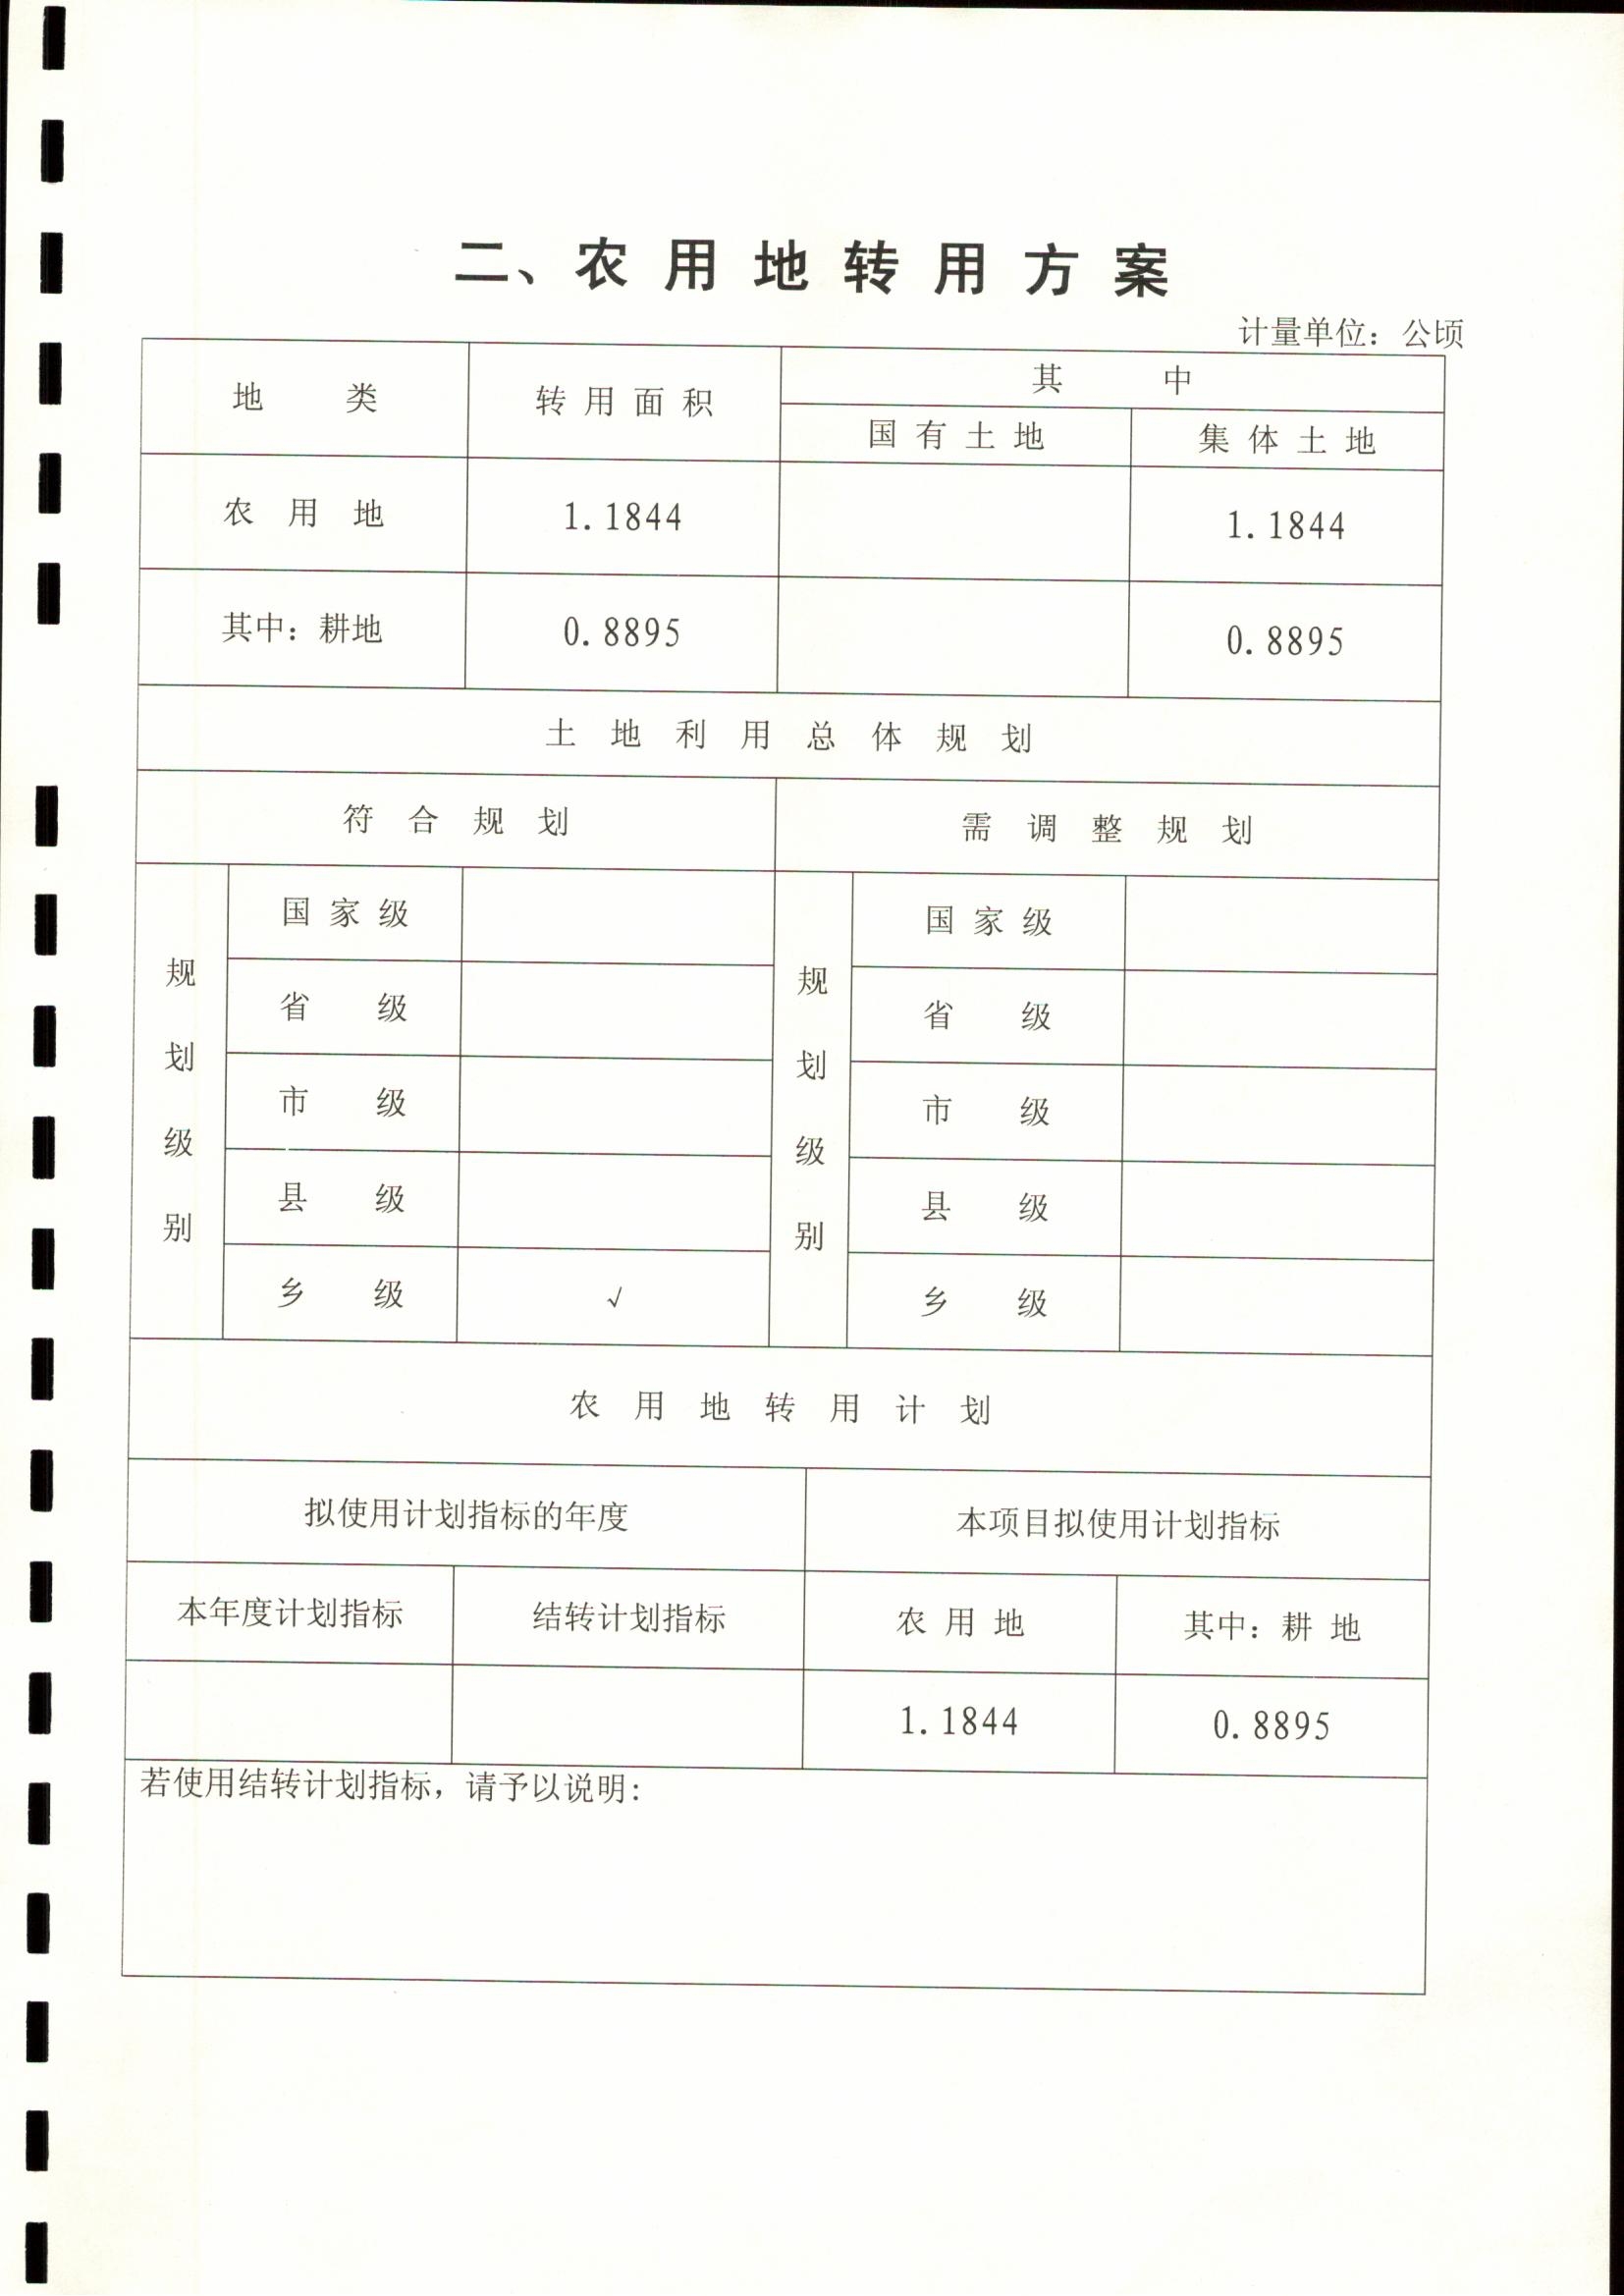 二、农用地转用方案
计量单位：公顷
地 类 转用面积 其 中
国有土地 集体土地
农用地 1.1844 1.1844
其中：耕地 0.8895 0.8895
土地利用总体规划
符合规划 需调整规划
规划级别 规划级别
国家级 国家级
省 级 省 级
市 级 市 级
县 级 县 级
乡 级 √ 乡 级
农用地转用计划
拟使用计划指标的年度 本项目拟使用计划指标
本年度计划指标 结转计划指标 农用地 其中：耕地
1.1844 0.8895
若使用结转计划指标，请予以说明：